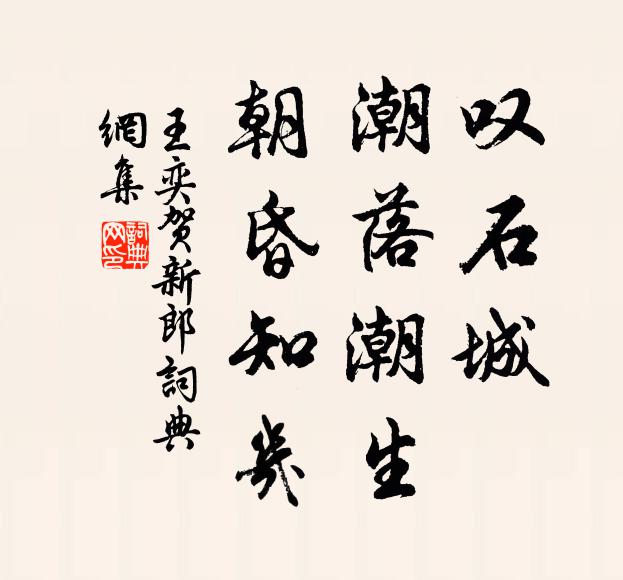 叹石城
潮落潮生
朝昏知几
王奕贺新郎詞典
網集
詞典网印